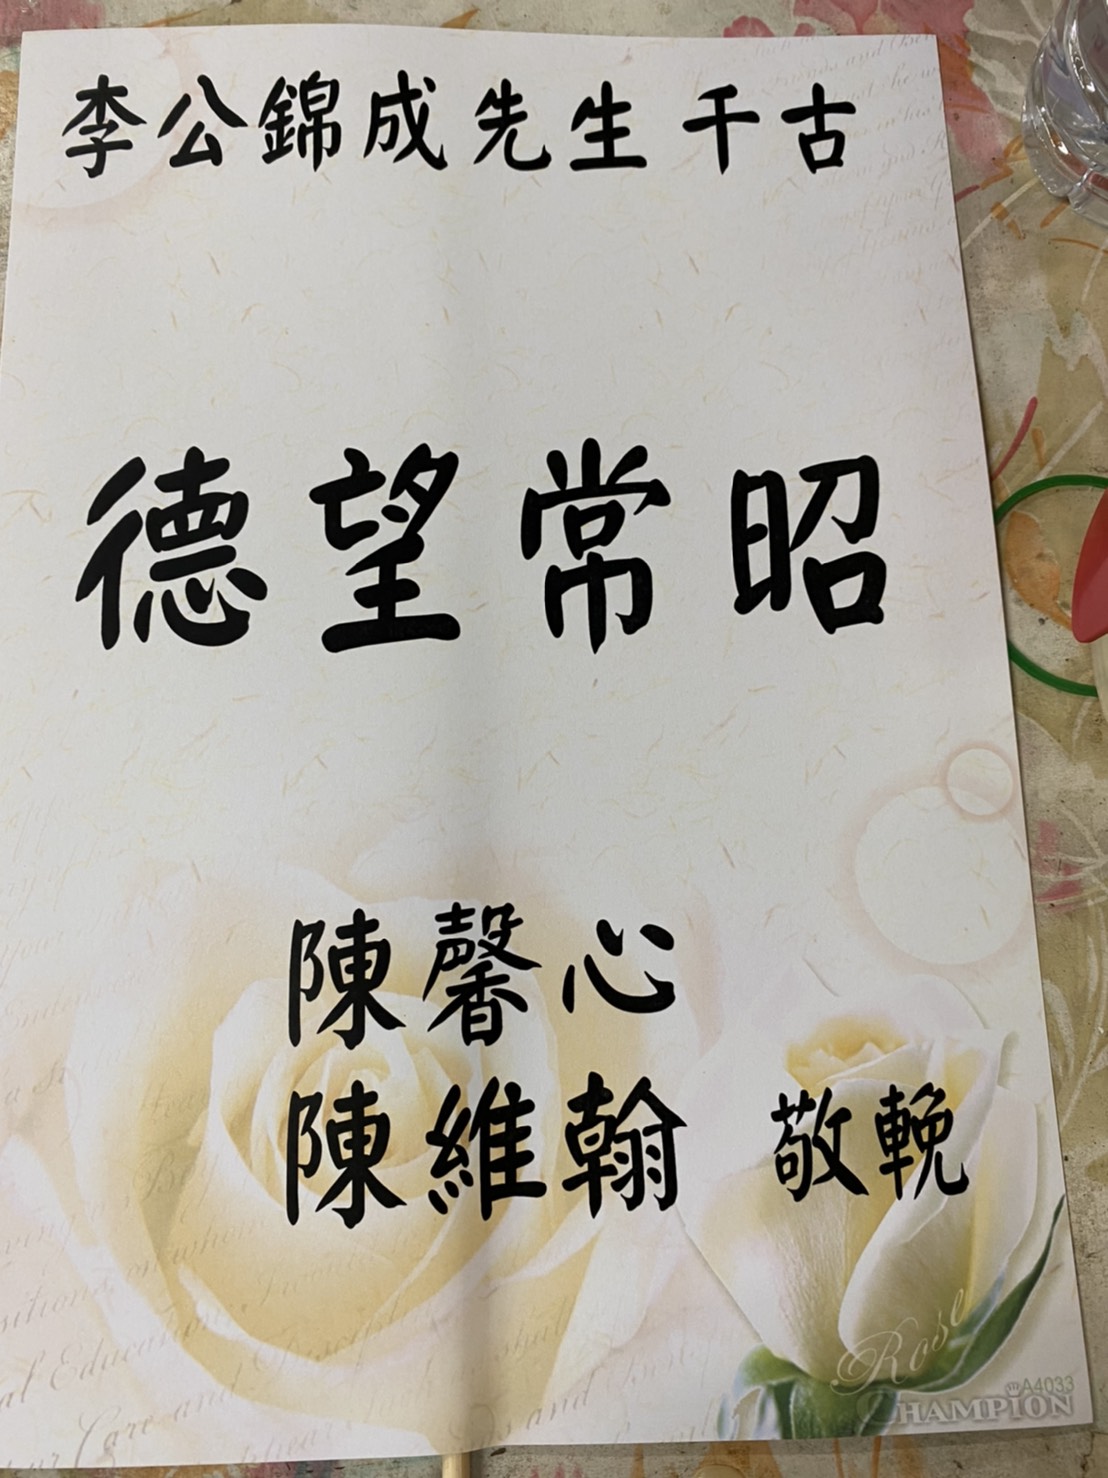 李公錦成先生 千古
德望常昭
陳馨心
陳維翰 敬輓
Rose
A4033
CHAMPION